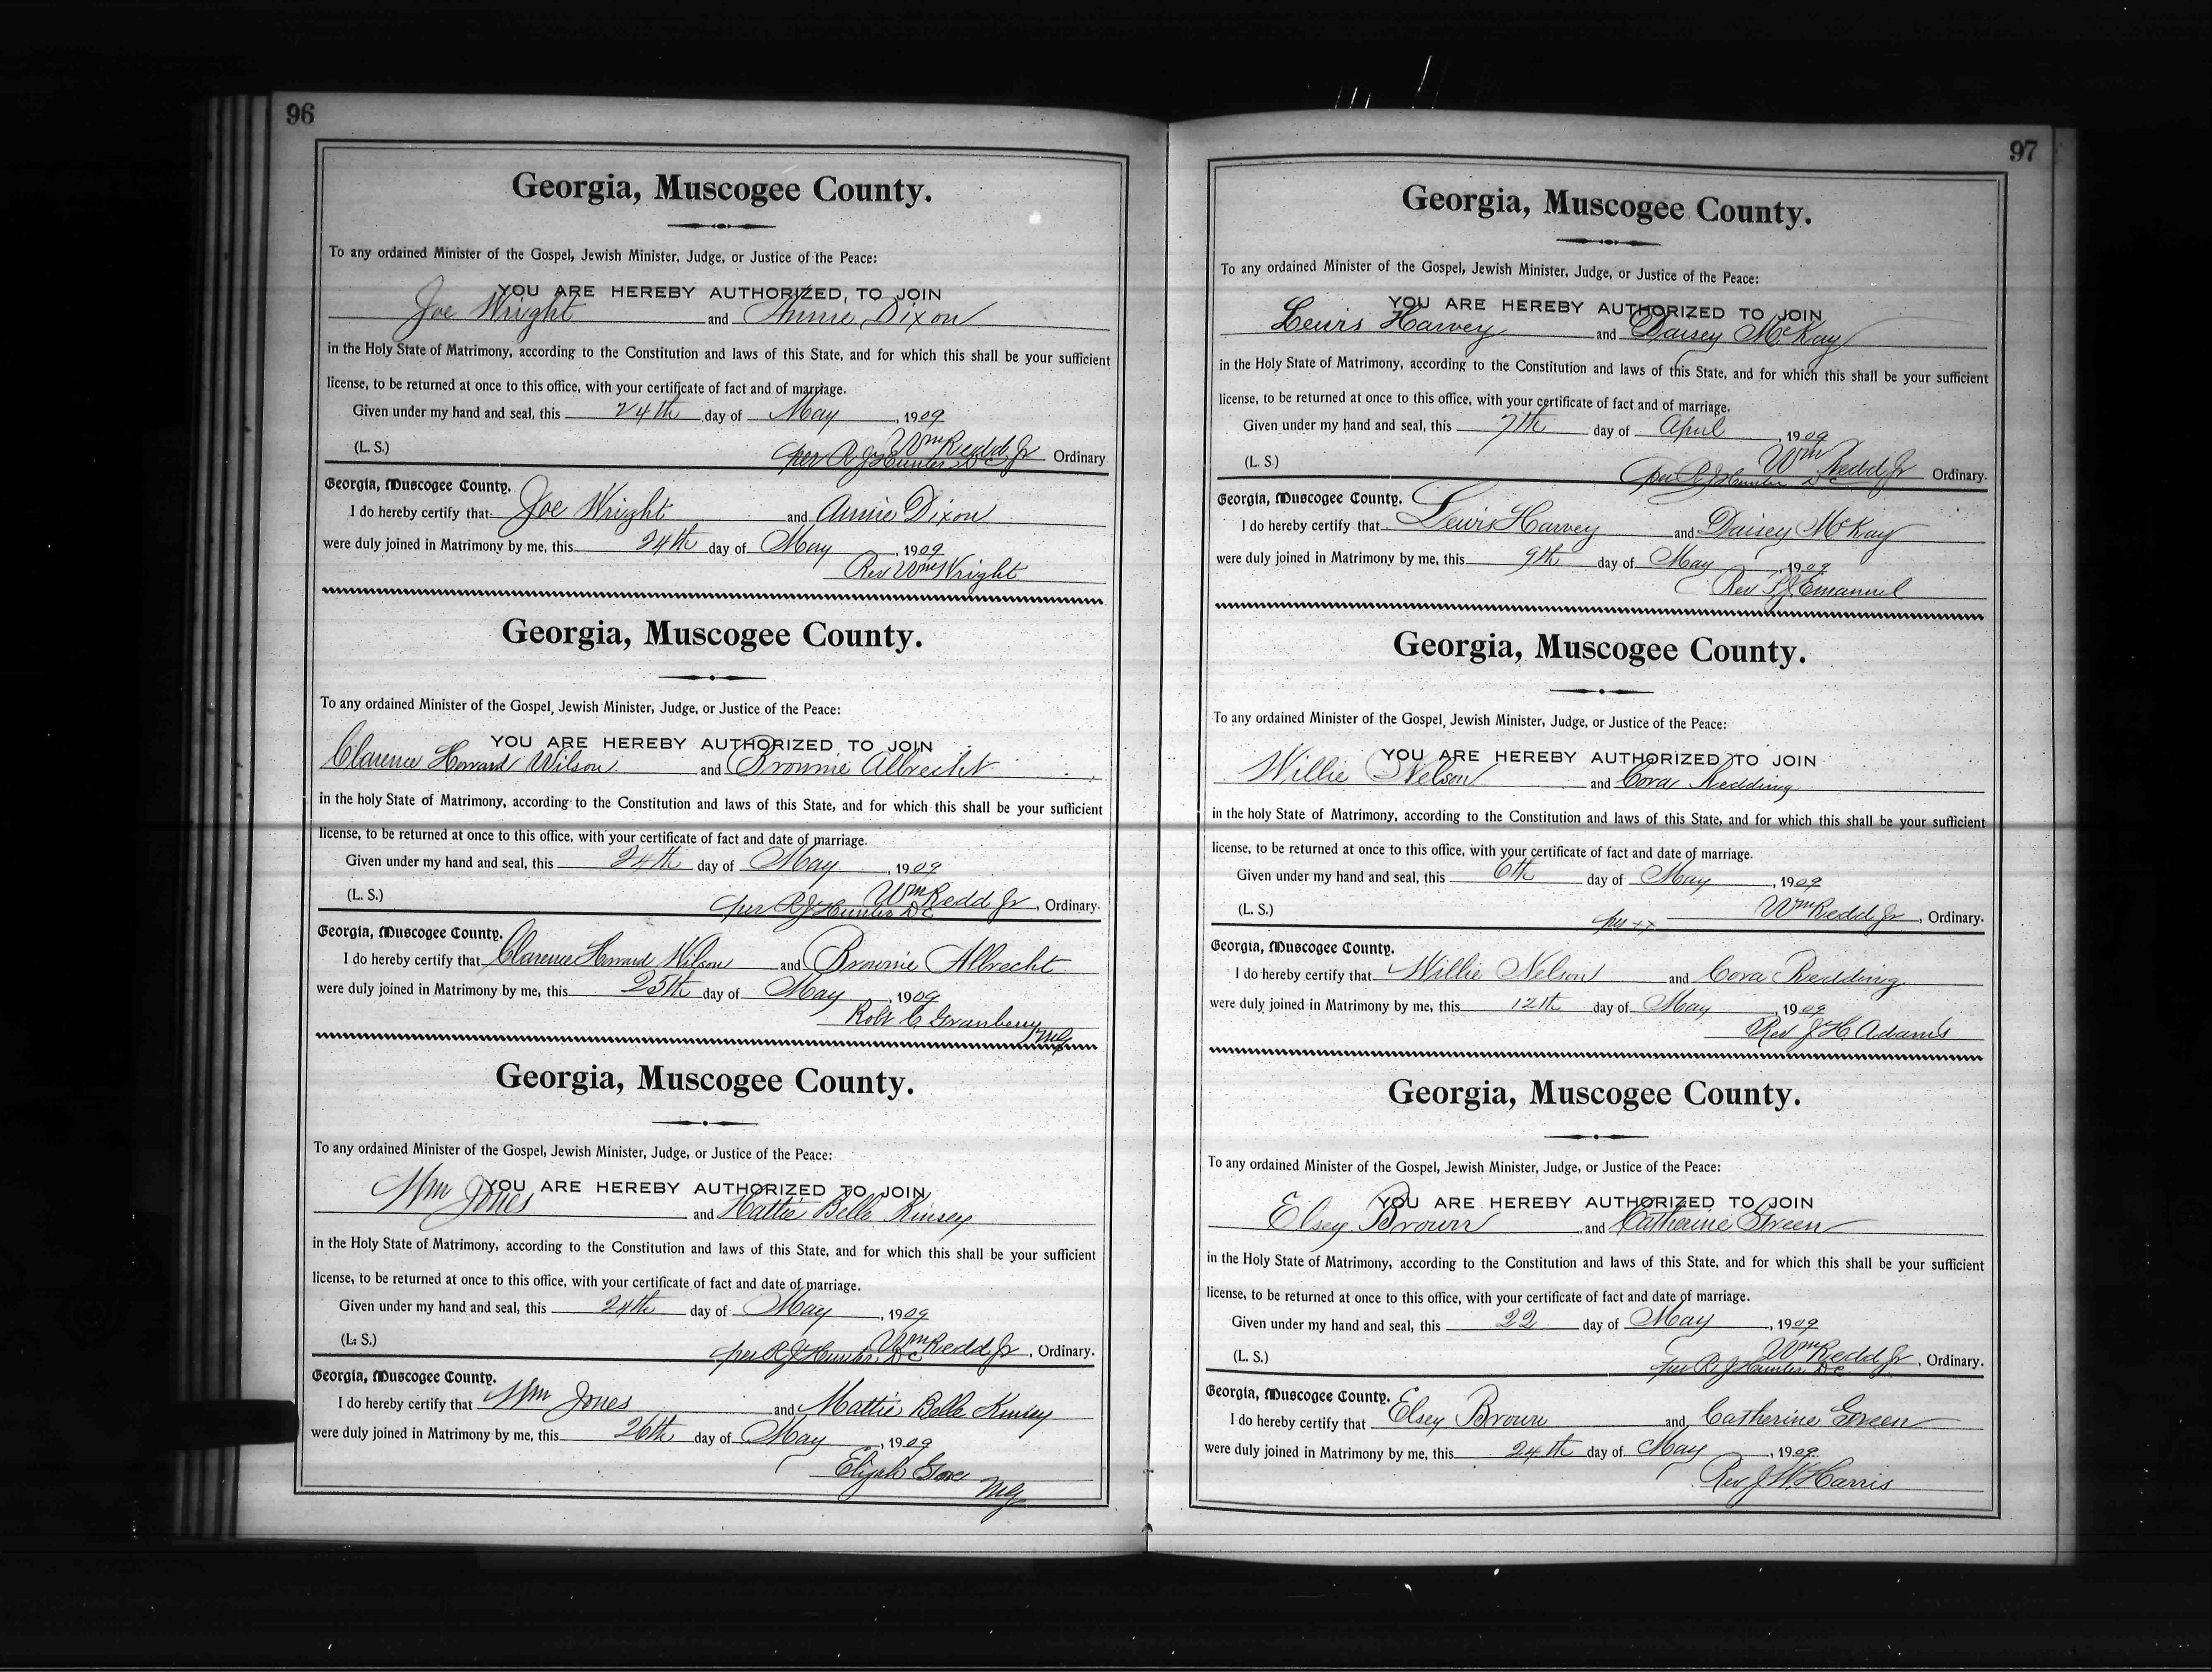 96
Georgia, Muscogee County.
To any ordained Minister of the Gospel, Jewish Minister, Judge, or Justice of the Peace:
YOU ARE HEREBY AUTHORIZED, TO JOIN
Joe Wright and Annie Dixon
in the Holy State of Matrimony, according to the Constitution and laws of this State, and for which this shall be your sufficient
license, to be returned at once to this office, with your certificate of fact and of marriage.
Given under my hand and seal, this 24th day of May, 1909
Wm Redd Jr
(L. S.) per R J Hunter DC Ordinary
Georgia, Muscogee County.
I do hereby certify that Joe Wright and Annie Dixon
were duly joined in Matrimony by me, this 24th day of May, 1909
Rev Wm Wright
Georgia, Muscogee County.
To any ordained Minister of the Gospel, Jewish Minister, Judge, or Justice of the Peace:
YOU ARE HEREBY AUTHORIZED, TO JOIN
Clarence Howard Wilson and Brownie Albrecht
in the holy State of Matrimony, according to the Constitution and laws of this State, and for which this shall be your sufficient
license, to be returned at once to this office, with your certificate of fact and date of marriage.
Given under my hand and seal, this 24th day of May, 1909
Wm Redd Jr
(L. S.) per R J Hunter DC, Ordinary.
Georgia, Muscogee County.
I do hereby certify that Clarence Howard Wilson and Brownie Albrecht
were duly joined in Matrimony by me, this 25th day of May, 1909
Robt C Granberry
MG
Georgia, Muscogee County.
To any ordained Minister of the Gospel, Jewish Minister, Judge, or Justice of the Peace:
YOU ARE HEREBY AUTHORIZED TO JOIN
Wm Jones and Hattie Belle Kinsey
in the Holy State of Matrimony, according to the Constitution and laws of this State, and for which this shall be your sufficient
license, to be returned at once to this office, with your certificate of fact and date of marriage.
Given under my hand and seal, this 24th day of May, 1909
Wm Redd Jr
(L. S.) per R J Hunter DC, Ordinary.
Georgia, Muscogee County.
I do hereby certify that Wm Jones and Mattie Belle Kinsey
were duly joined in Matrimony by me, this 26th day of May, 1909
Elijah Gore
MG
97
Georgia, Muscogee County.
To any ordained Minister of the Gospel, Jewish Minister, Judge, or Justice of the Peace:
YOU ARE HEREBY AUTHORIZED TO JOIN
Lewis Harvey and Daisey McKay
in the Holy State of Matrimony, according to the Constitution and laws of this State, and for which this shall be your sufficient
license, to be returned at once to this office, with your certificate of fact and of marriage.
Given under my hand and seal, this 7th day of April, 1909
Wm Redd Jr
(L. S.) per R J Hunter DC Ordinary.
Georgia, Muscogee County.
I do hereby certify that Lewis Harvey and Daisey McKay
were duly joined in Matrimony by me, this 9th day of May, 1909
Rev Emanuel
Georgia, Muscogee County.
To any ordained Minister of the Gospel, Jewish Minister, Judge, or Justice of the Peace:
YOU ARE HEREBY AUTHORIZED TO JOIN
Willie Nelson and Cora Redding
in the holy State of Matrimony, according to the Constitution and laws of this State, and for which this shall be your sufficient
license, to be returned at once to this office, with your certificate of fact and date of marriage.
Given under my hand and seal, this 6th day of May, 1909
(L. S.) per Wm Redd Jr, Ordinary.
Georgia, Muscogee County.
I do hereby certify that Willie Nelson and Cora Redding
were duly joined in Matrimony by me, this 12th day of May, 1909
Rev J H Adams
Georgia, Muscogee County.
To any ordained Minister of the Gospel, Jewish Minister, Judge, or Justice of the Peace:
YOU ARE HEREBY AUTHORIZED TO JOIN
Elsey Brown and Catherine Green
in the Holy State of Matrimony, according to the Constitution and laws of this State, and for which this shall be your sufficient
license, to be returned at once to this office, with your certificate of fact and date of marriage.
Given under my hand and seal, this 22 day of May, 1909
Wm Redd Jr
(L. S.) per R J Hunter DC, Ordinary.
Georgia, Muscogee County.
I do hereby certify that Elsey Brown and Catherine Green
were duly joined in Matrimony by me, this 24th day of May, 1909
Rev J W Harris